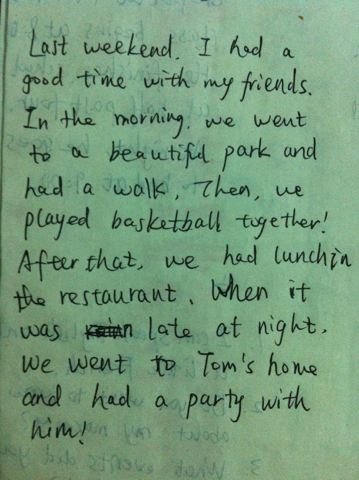 Last weekend. I had a
good time with my friends.
In the morning. we went
to a beautiful park and
had a walk, Then, we
played basketball together!
After that, we had lunch in
the restaurant. When it
was late at night.
we went to Tom's home
and had a party with
him!